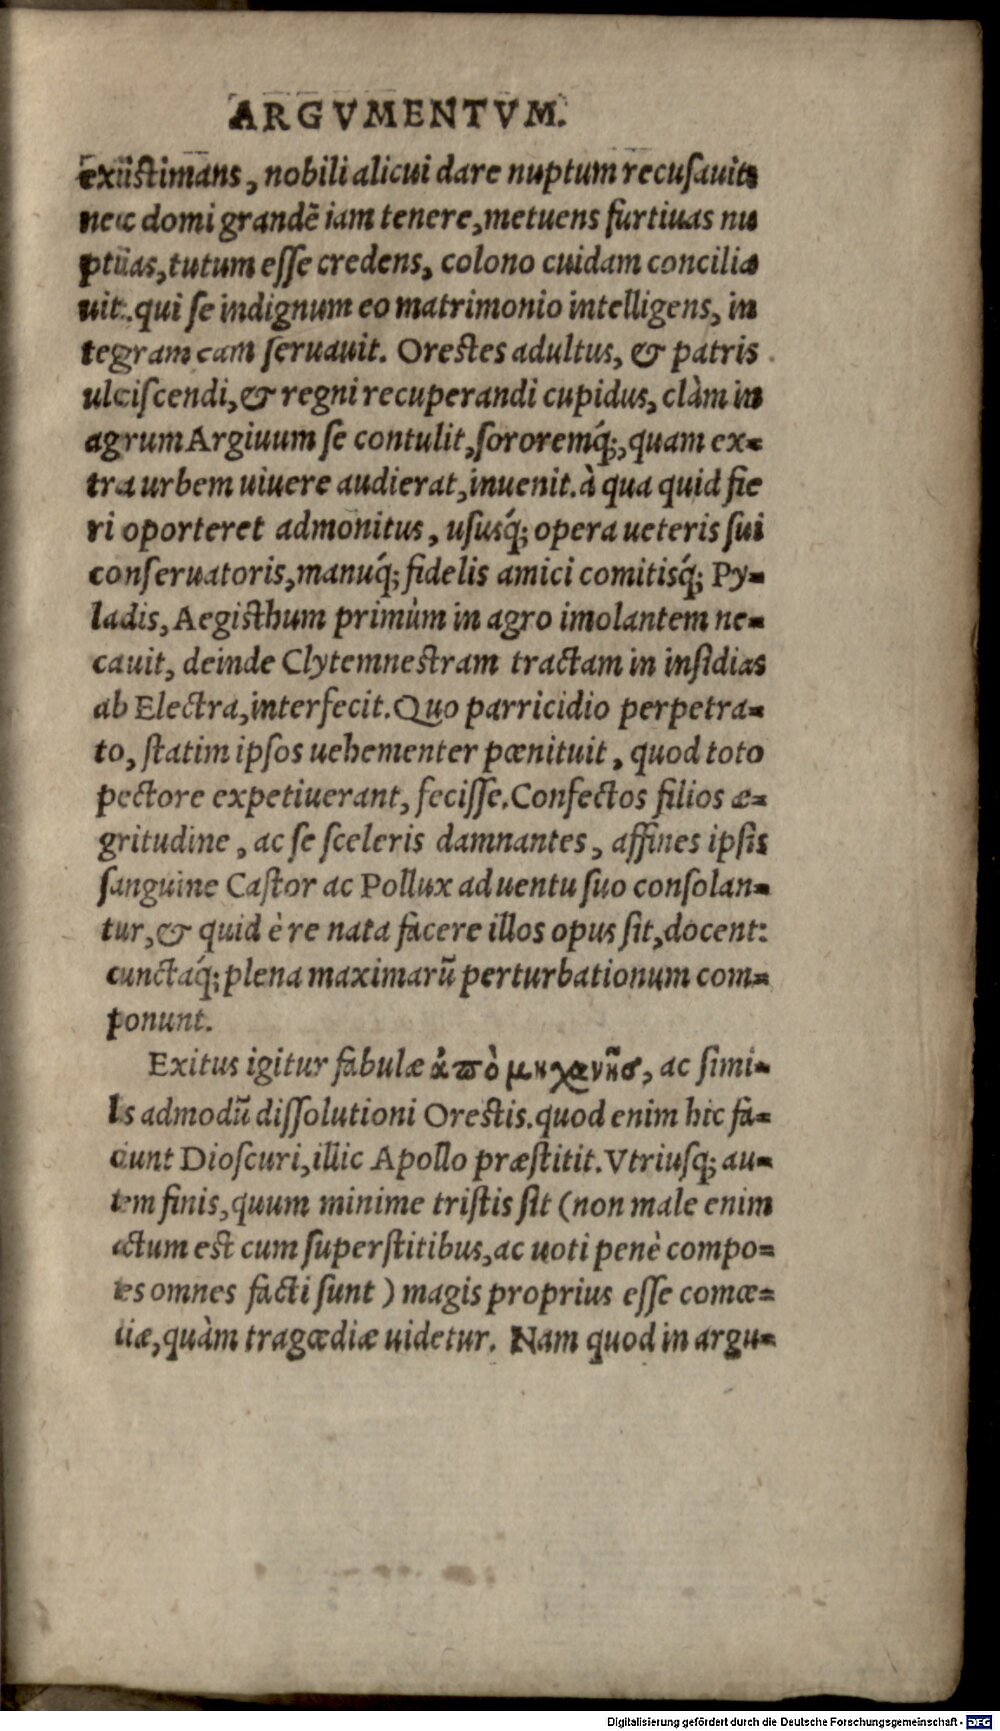 ARGVMENTVM.
existimans, nobili alicui dare nuptum recusauit:
nec domi grandē iam tenere, metuens furtiuas nu
ptias, tutum esse credens, colono cuidam concilia
uit. qui se indignum eo matrimonio intelligens, in
tegram eam seruauit. Orestes adultus, & patris
ulciscendi, & regni recuperandi cupidus, clàm in
agrum Argiuum se contulit, sororemq́;, quam ex-
tra urbem uiuere audierat, inuenit. à qua quid fie
ri oporteret admonitus, ususq́; opera ueteris sui
conseruatoris, manuq́; fidelis amici comitisq́; Py-
ladis, Aegisthum primùm in agro imolantem ne-
cauit, deinde Clytemnestram tractam in insidias
ab Electra, interfecit. Quo parricidio perpetra-
to, statim ipsos uehementer pœnituit, quod toto
pectore expetiuerant, fecisse. Confectos filios æ-
gritudine, ac se sceleris damnantes, affines ipsis
sanguine Castor ac Pollux aduentu suo consolan-
tur, & quid è re nata facere illos opus sit, docent:
cunctaq́; plena maximarū perturbationum com-
ponunt.
Exitus igitur fabulæ ἀπὸ μηχανῆς, ac simi-
ls admodū dissolutioni Orestis. quod enim hic fa-
ciunt Dioscuri, illic Apollo præstitit. Vtriusq; au-
tem finis, quum minime tristis sit (non male enim
actum est cum superstitibus, ac uoti penè compo-
tes omnes facti sunt) magis proprius esse comœ-
diæ, quàm tragœdiæ uidetur. Nam quod in argu-
Digitalisierung gefördert durch die Deutsche Forschungsgemeinschaft - DFG